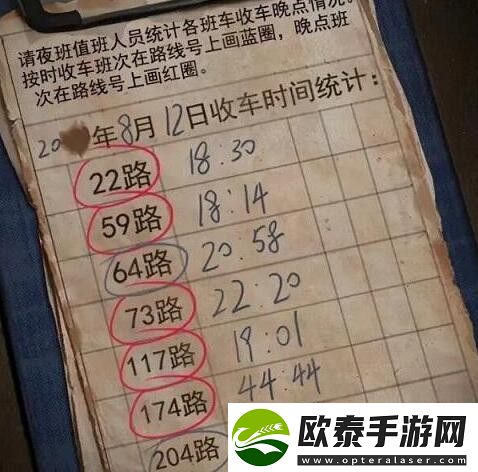 请夜班值班人员统计各班车收车晚点情况。
按时收车班次在路线号上画蓝圈，晚点班
次在路线号上画红圈。
20 年8月12日收车时间统计：
22路 18:30
59路 18:14
64路 20:58
73路 22:20
117路 19:01
174路 44:44
204路
欧泰手游网
www.opteralaser.com